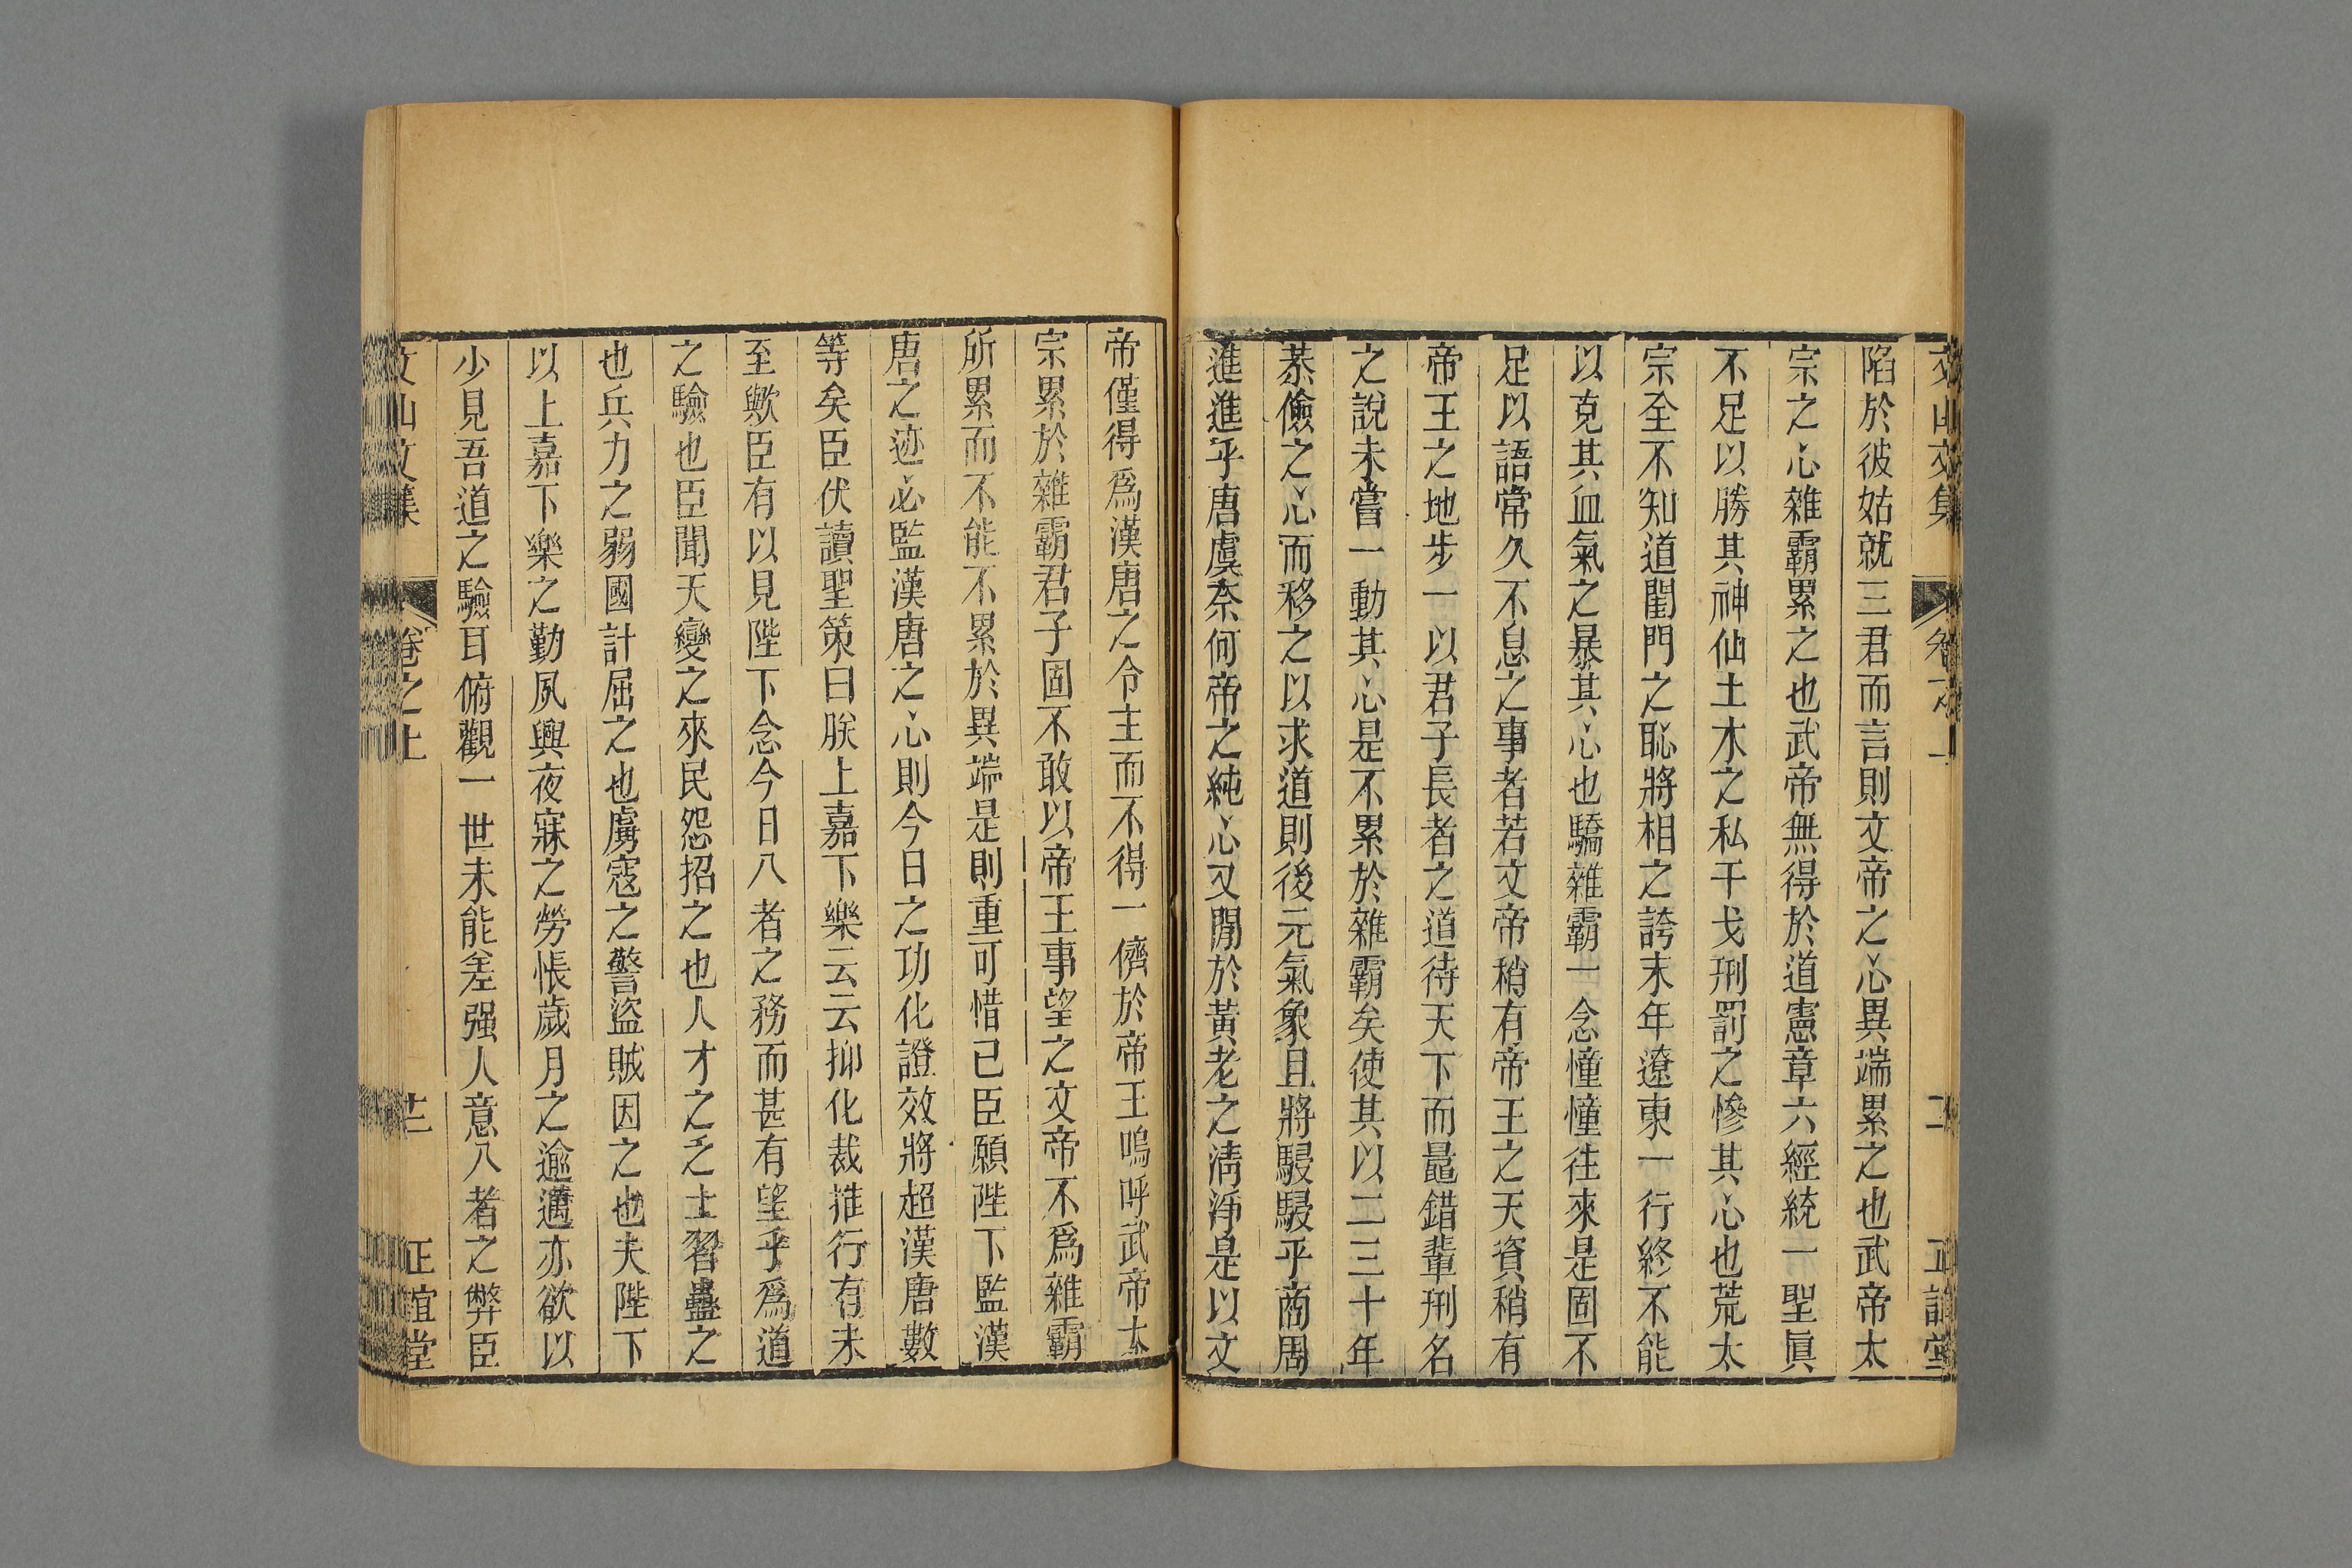 文山文集 卷之上 二 正誼堂
陷於彼姑就三君而言則文帝之心異端累之也武帝太
宗之心雜霸累之也武帝無得於道憲章六經統一聖眞
不足以勝其神仙土木之私干戈刑罰之慘其心也荒太
宗全不知道閨門之恥將相之誇末年遼東一行終不能
以克其血氣之暴其心也驕雜霸一念憧憧往來是固不
足以語常久不息之事者若文帝稍有帝王之天資稍有
帝王之地步一以君子長者之道待天下而鼂錯輩刑名
之說未嘗一動其心是不累於雜霸矣使其以二三十年
恭儉之心而移之以求道則後元氣象且將駸駸乎商周
進進乎唐虞奈何帝之純心又閒於黃老之淸淨是以文
帝僅得爲漢唐之令主而不得一儕於帝王嗚呼武帝太
宗累於雜霸君子固不敢以帝王事望之文帝不爲雜霸
所累而不能不累於異端是則重可惜已臣願陛下監漢
唐之迹必監漢唐之心則今日之功化證效將超漢唐數
等矣臣伏讀聖策曰朕上嘉下樂云云抑化裁推行有未
至歟臣有以見陛下念今日八者之務而甚有望乎爲道
之驗也臣聞天變之來民怨招之也人才之乏士習蠱之
也兵力之弱國計屈之也虜寇之警盜賊因之也夫陛下
以上嘉下樂之勤夙興夜寐之勞悵歲月之逾邁亦欲以
少見吾道之驗耳俯觀一世未能差强人意八者之弊臣
文山文集 卷之上 正誼堂